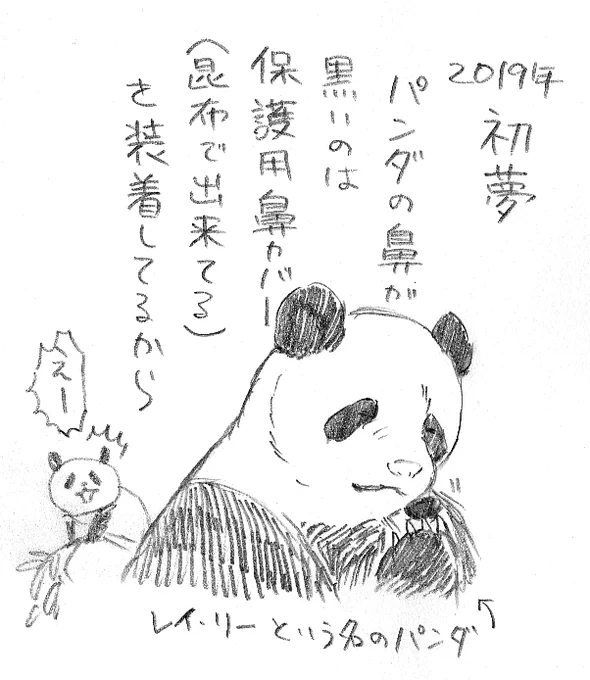 2019年
初夢
パンダの鼻が
黒いのは
保護用鼻カバー
(昆布で出来てる)
を装着してるから
えー
レイ・リーという名のパンダ